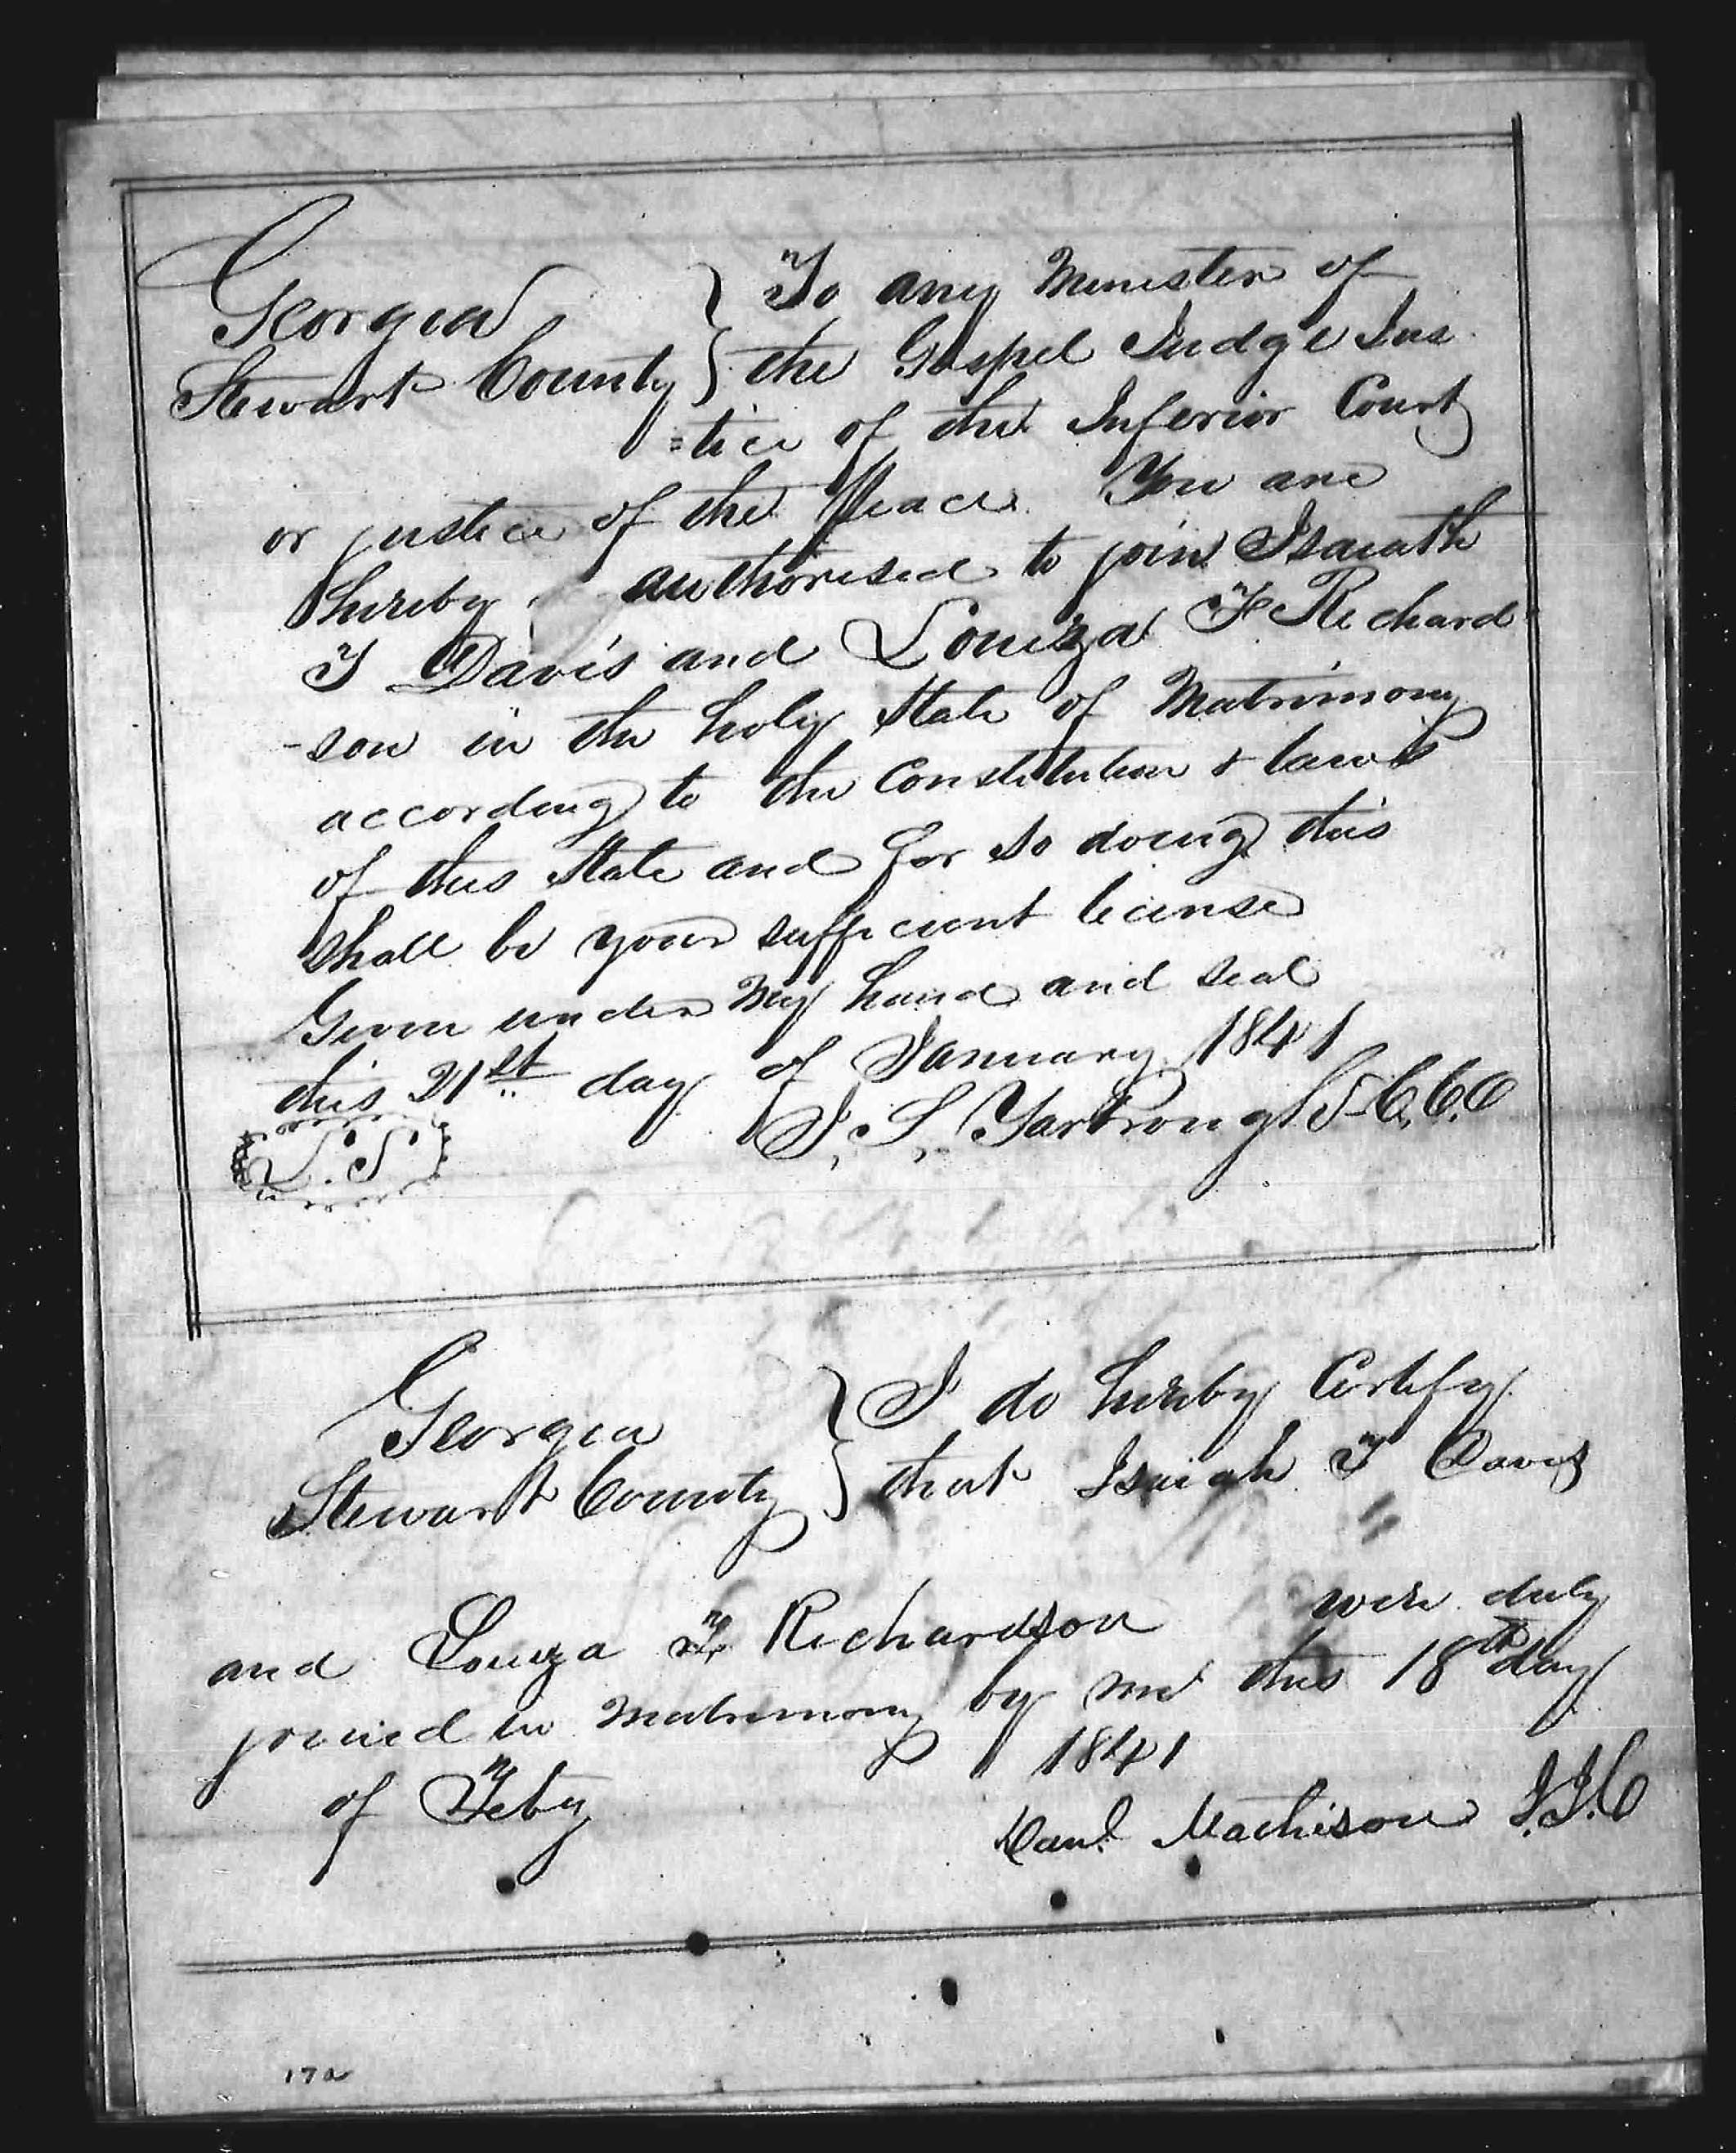 Georgia } To any Minister of
Stewart County } the Gospel Judge Jus
=tice of the Inferior Court
or justice of the Peace You are
hereby authorised to join Isaiath
T Davis and Louiza F Richard
-son in the holy State of Matrimony
according to the Constitution & laws
of this State and for so doing this
shall be your sufficient license
Given under My hand and seal
this 21st day of January 1841
L.S. J. S. Yarbrough C.C.O
Georgia } I do hereby Certify
Stewart County } that Isaiah T Davis
and Louiza F Richardson were duly
joined in Matrimony by me this 18th day
of Feby 1841
Danl Mathison J.I.C
17a